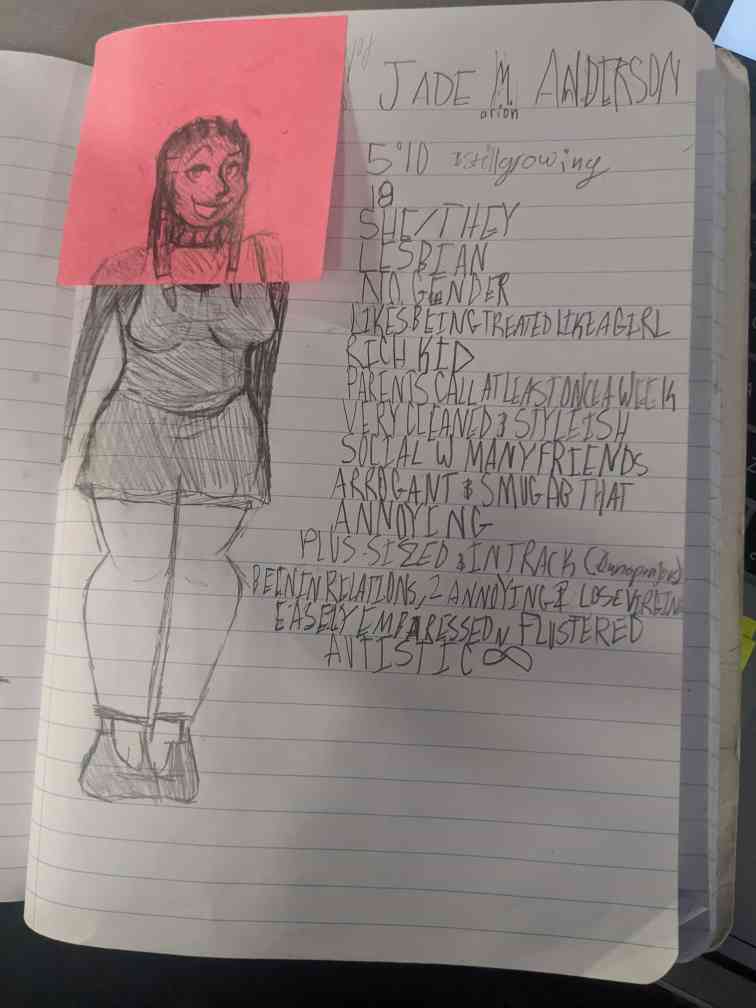 JADE M. ANDERSON
arion
5'10 & still growing
18
SHE/THEY
LESBIAN
NO GENDER
LIKES BEING TREATED LIKE A GIRL
RICH KID
PARENTS CALL AT LEAST ONCE A WEEK
VERY CLEANED & STYLEISH
SOCIAL W MANY FRIENDS
ARROGANT & SMUG AB THAT
ANNOYING
PLUS SIZED & IN TRACK
BEEN IN RELATIONS, 2 ANNOYING &
EASELY EMBARESSED N FLUSTERED
AUTISTIC ∞